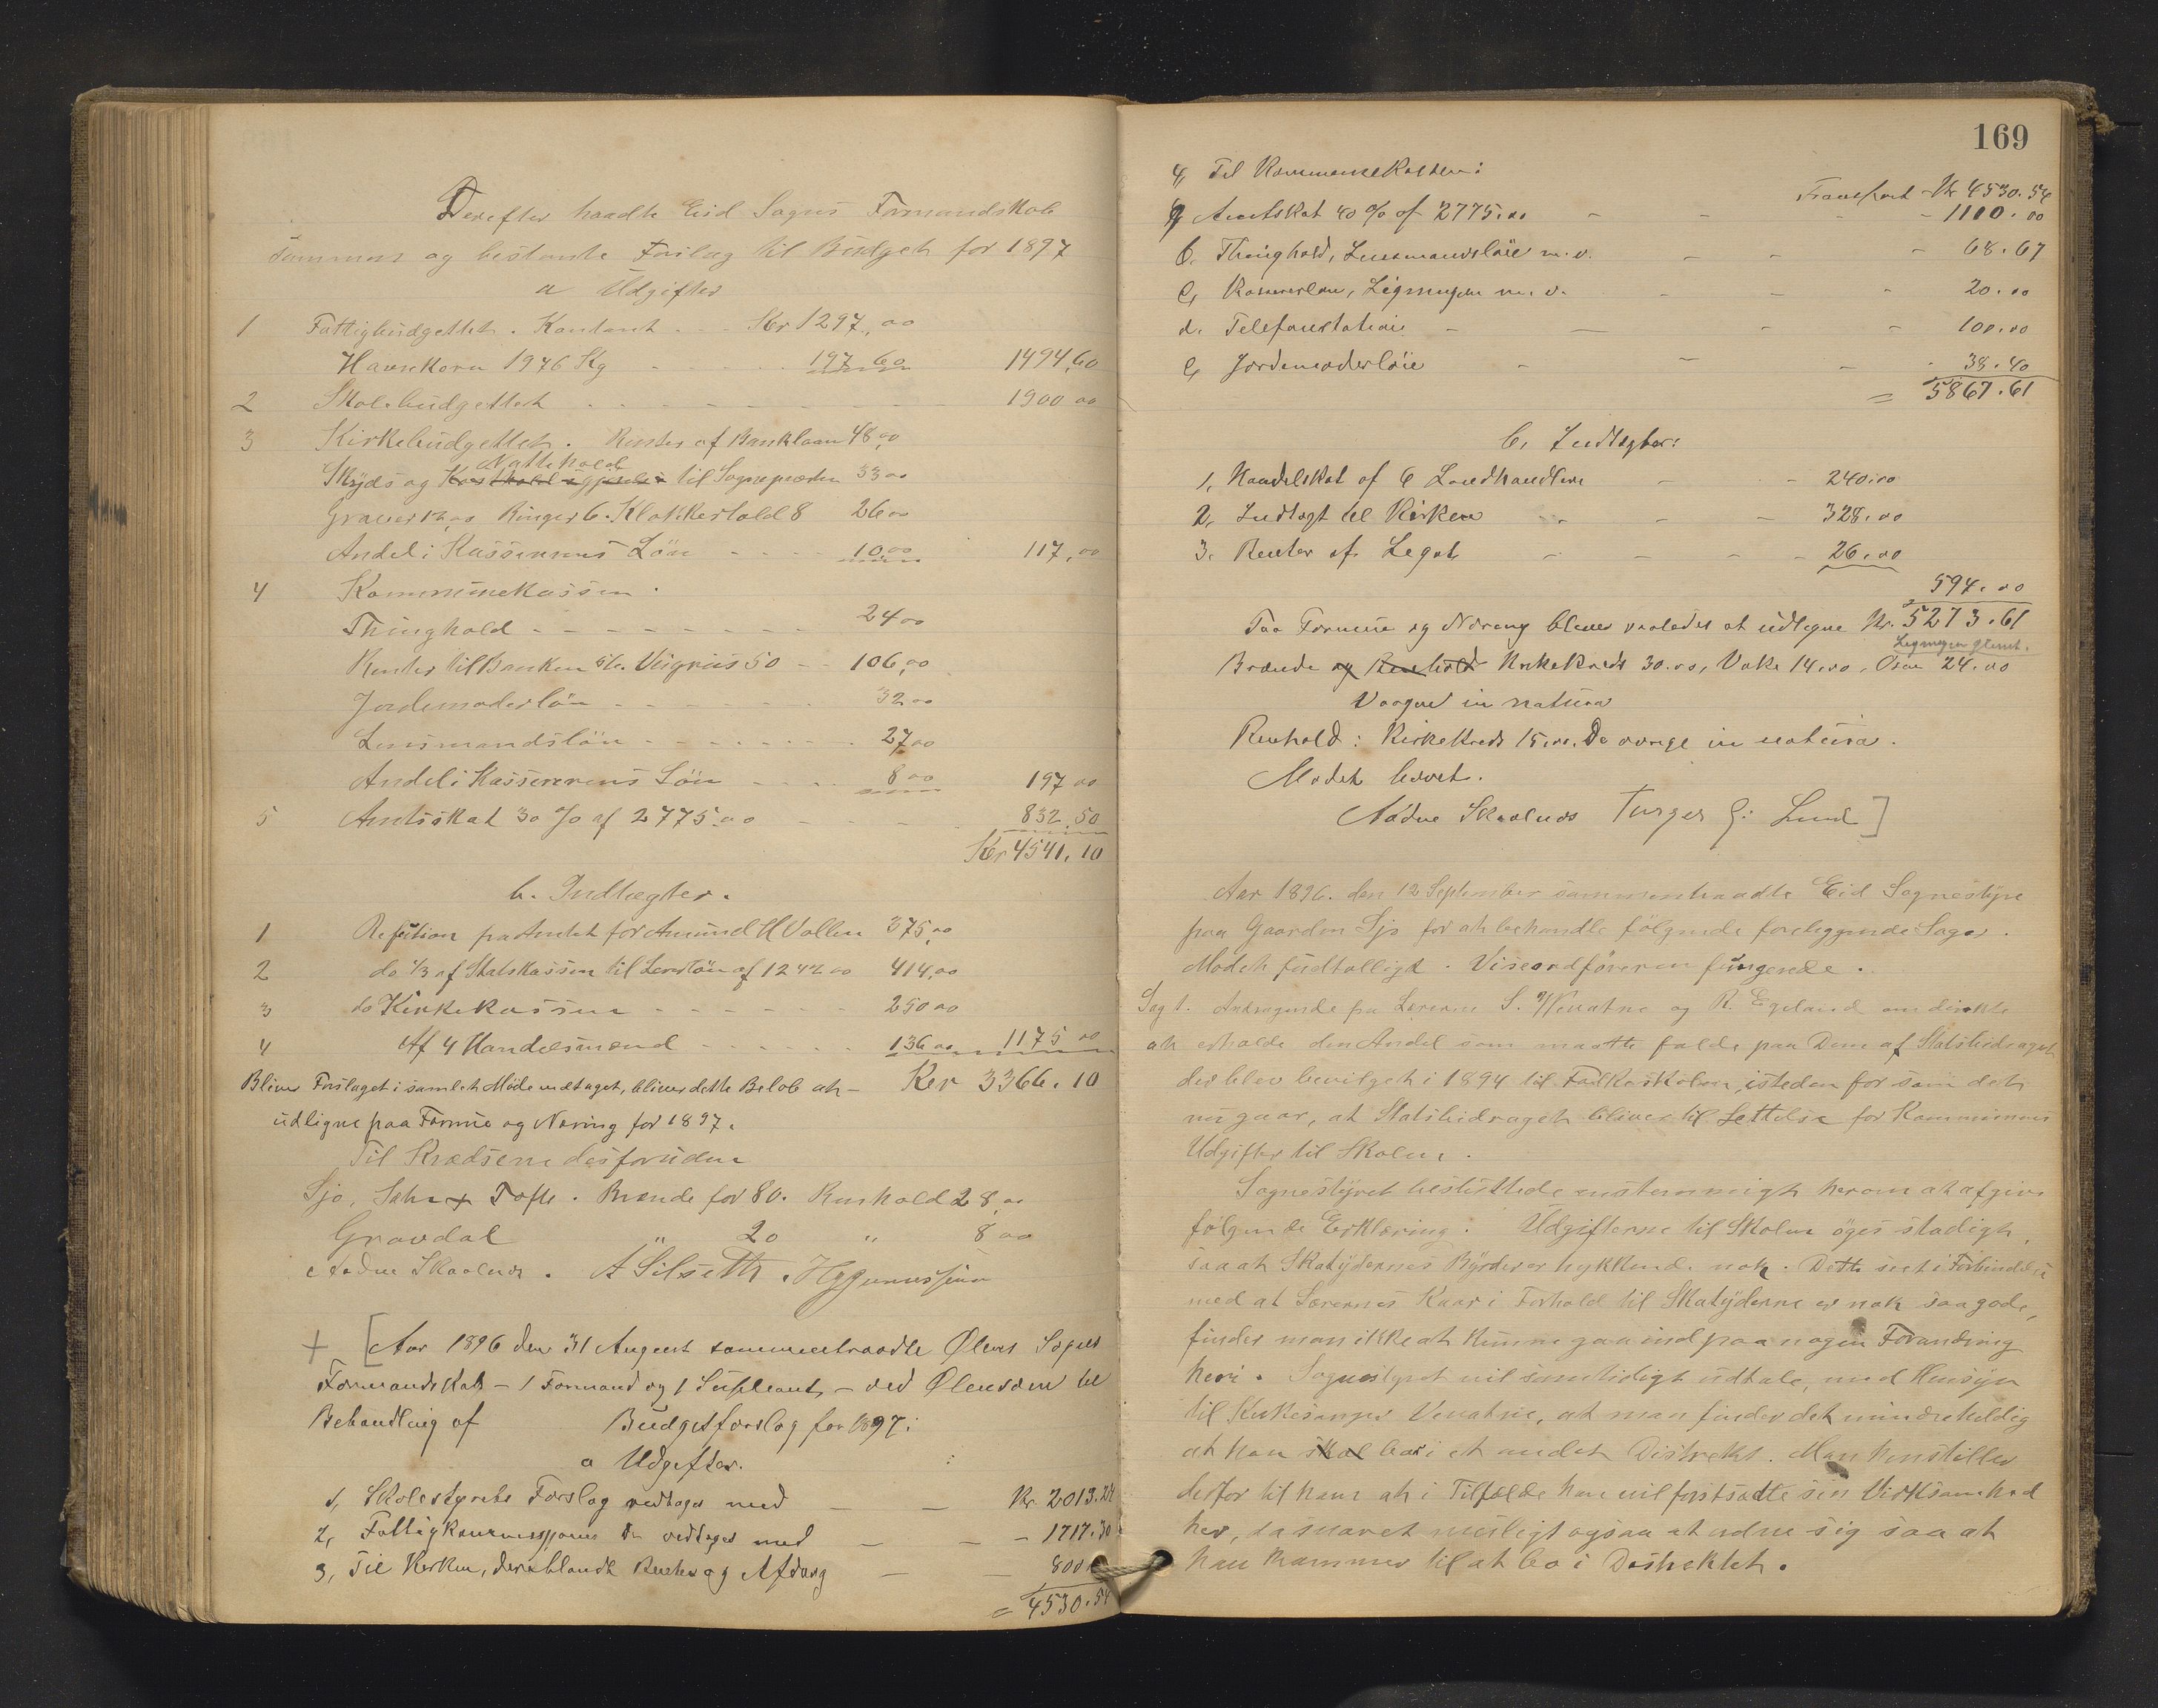 Derefter traadte Eid Sogns Formandskab
sammen og bestemte Forslag til Budget for 1897
a Udgifter
1 Fattigbudgettet. Kontant - - Kr 1297,00
Havrekorn 1976 Kg - - - - 197,60 1494,60
2 Skolebudgettet - - - - - - 1900 00
3 Kirkebudgettet. Renter af Banklaan 48,00
Nattehold
Skyds og til Sognepræsten 33 00
Graver 12,00 Ringer 6. Klokkerhold 8 26 00
Andel i Kassererens Løn - - - 10,00 117,00
4 Kommunekassen.
Thinghold - - - - - - - 24 00
Renter til Banken 56. Vigriis 50 - - 106,00
Jordemoderløn - - - - - 32 00
Lensmandsløn - - - - - 27,00
Andel i Kassererens Løn - - - 8 00 197 00
5 Amtsskat 30 % af 2775.00 - - - - 832,50
Kr 4541.10
b. Indtægter.
1 Refution fra Amtet for Amund H Vollen 375,00
2 do 1/3 af Statskassen til Lærerløn af 1242 00 414,00
3 do Kirkekassen - - - - - 250 00
4 Af 4 Handelsmænd - - - - - 136 00 1175 00
Bliver Forslaget i samlet Møde vedtaget, bliver dette Beløb at - Kr 3366.10
udligne paa Formue og Næring for 1897.
Til Krædsene desforuden
Sjo, Tofte. Brænde for 80. Renhold 28,00
Gravdal " 20 " 8 00
Aadne Skaalnes. A Silseth.
+ [Aar 1896 den 31 August sammentraadte Ølens Sogns
Formandskab - 1 Formand og 1 Supleant - ved Ølensøren til
Behandling af Budgetforslag for 1897:
a Udgifter.
1, Skolestyrets Forslag vedtages med - - Kr. 2013.24
2, Fattigkommissjonens Do vedtages med - - - 1717.30
3, Til Kirken, deriblandt Renter og Afdrag - - 800
= 4530.54
169
4, Til Kommunekassen:
Transport Kr 4530.54
a Amtskat 40 % af 2775.00 - - - - 1110.00
b. Thinghold, Lensmandsløn m.v. - - - 68.67
c, Kassererløn, Ligningen m.v. - - - 20.00
d. Telefonstation - - - - 100.00
e, Jordemoderløn - - - - 38.40
= 5867.61
b, Indtægter:
1, Handelskat af 6 Landhandlere - - 240.00
2, Indtægt til Kirken - - - 328.00
3. Renter af Legat - - - - 26.00
594.00
Paa Formue og Næring bliver saaledes at udligne Kr. 5273.61
Ligningen
Brænde og Renhold Kirkekreds 30.00, Vake 14.00, Øsen 24.00
Vaagen in natura
Renhold: Kirkekreds 15.00. De øvrige in natura.
Mødet hævet.
Aadne Skaalnes Torger G: Lund]
Aar 1896. den 12 September sammentraadte Eid Sognestyre
paa Gaarden Sjo for at behandle følgende foreliggende Sager.
Mødet fuldtalligt. Viseordføreren fungerede.
Sag 1. Andragende fra Lærerne S. Venatne og R. Egeland om direkte
at erholde den Andel som maatte falde paa Dem af Statsbidraget
der blev bevilget i 1894 til Folkeskolen, isteden for som det
nu gaar, at Statsbidraget bliver til Lettelse for Kommunens
Udgifter til Skolen.
Sognestyret besluttede enstemmigt herom at afgive
følgende Erklæring: Udgifterne til Skolen øges stadigt,
saa at Skatyternes Byrder er trykkende nok. Dette seet i Forbindelse
med at Lærernes Kaar i Forhold til Skatyderne er nok saa gode,
finder man ikke at kunne gaa ind paa nogen Forandring
heri. Sognestyret vil samtidigt udtale, med Hensyn
til Kirkesanger Venatne, at man finder det mindre heldig
at han skal bo i et andet Distrekt. Man henstiller
derfor til ham at i Tilfælde han vil fortsætte sin Virksomhed
her, da snaret muligt ogsaa at ordne sig saa at
han kommer til at bo i Destrektet.